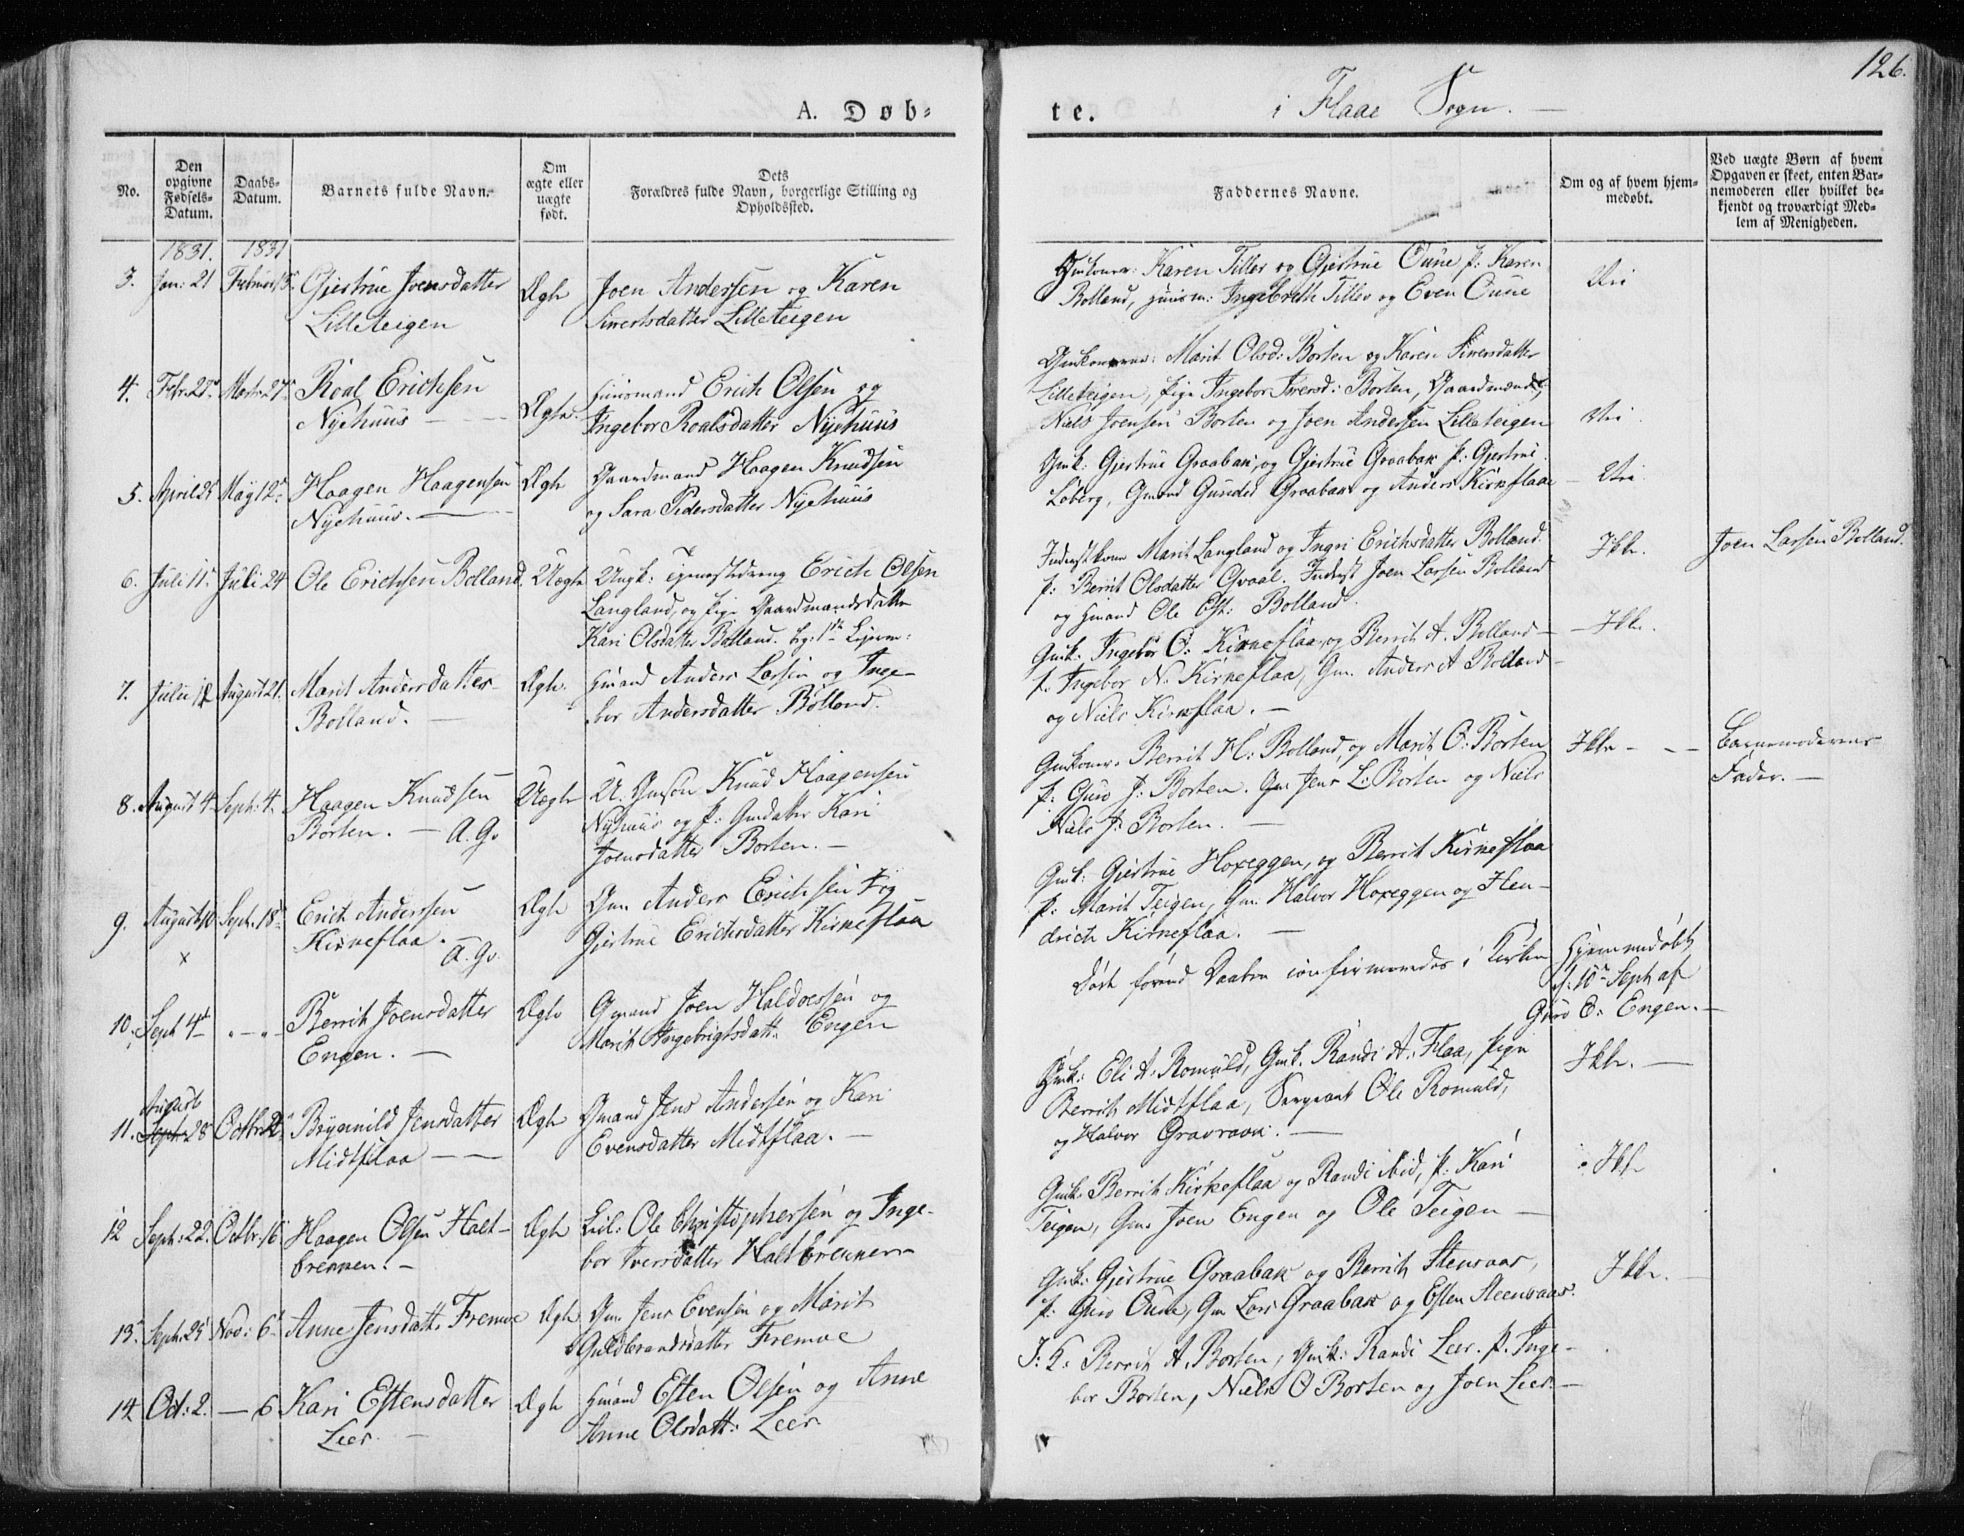 126.
A. Døb-
te.
i Flaae Sogn. —
No.
Den
opgivne
Fødsels-
Datum.
Daabs-
Datum.
Barnets fulde Navn.
Om
ægte eller
uægte
født.
Dets
Forældres fulde Navn, borgerlige Stilling og
Opholdssted.
Faddernes Navne.
Om og af hvem hjem-
medøbt.
Ved uægte Børn af hvem
Opgaven er skeet, enten Bar-
nemoderen eller hvilket be-
kjendt og troværdigt Med-
lem af Menigheden.
1831. 1831
3. Jan: 21 Gjertrue Joensdatter Ægte Joen Andersen og Karen
Lilleteigen Siwertsdatter Lilleteigen
Karen Tiller og Gjertrue Oune p: Karen
Bolland, Huusm: Ingebreth Tiller og Even Oune
4. Roal Erichsen Huusmand Erich Olsen og
Nyehuus Ingebor Roalsdatter Nyehuus
Marit Olsd: Borten og Karen Siversdatter
Lilleteigen, Pige Ingebor Borten, Gaardmænd
Niels Joensen Borten og Joen Andersen Lilleteigen
5. April 25 May 12 Haagen Haagensen Ægte Gaardmand Haagen Knudsen
Nyehuus. og Sara Pedersdatter Nyehuus
Gmk: Gjertrue Graabak og Gjertrue Graabak p: Gjertrue
Loberg, Gmand Graabak og Anders Kirkeflaae
6. Juli 11 Juli 24 Ole Erichsen Bolland Uægte Ungk: Tjenestedreng Erich Olsen
Langland, og Pige Gaardmandsdatter
Kari Olsdatter Bolland.
Marit Langland og Ingri Erichsdatter Bolland
p: Berrit Olsdatter Qvaal. Inderst Joen Larsen Bolland
og Hmand Ole Bolland.
Joen Larsen Bolland.
7. August 21. Marit Andersdatter Ægte. Hmand Anders Larsen og Inge-
Bolland. — bor Andersdatter Bolland.
Gmk. Ingebor O: Kirkeflaa, og Berrith A. Bolland —
p. Ingebor N. Kirkeflaa, Gm. Anders A Bolland
og Niels Kirkeflaa. —
8. August 4. Sept: 4. Haagen Knudsen Uægte U. Gmsøn Knud Haagensen
Borten. — A. G. Nyhuus og p: Gmdatter Kari
Joensdatter Borten. —
Berrit H: Bolland, og Marit O: Borten
p: Guro J: Borten. Gm: Jens L: Borten og Niels
Niels J: Borten. —
Barnemoderens
Fader. —
9. August 10 Sept: 18 Erich Andersen Ægte Gm Anders Erichsen og
x Kirkeflaa. A. G. Gjertrue Erichsdatter Kirkeflaa
Gmk: Gjertrue Hoxeggen, og Berrit Kirkeflaa
p: Marit Teigen, Gm: Halvor Hoxeggen og Hen-
drich Kirkeflaa. —
10. Sept 4 Berrit Joensdatter Ægte Gmand Joen Haldorsen og
Engen. — Marit Ingebrigtsdatt: Engen
Døde førend Daaben confirmeredes i Kirken
Hjemmedøbt
d: 10 Sept af
Guro E: Engen. —
11. August
Sept: 28 Brynnild Jensdatter Ægte Gmand Jens Andersen og Kari
Midtflaa — Evensdatter Midtflaa. —
Gmk: Eli A. Romuld, Gmk. Randi A: Flaa, Pige
Berrith Midtflaa, Sergeant Ole Romuld,
og Halvor Gravraak. —
12 Sept: 22. Octbr: 16 Haagen Olsen Halt- Ægte Ole Christophersen og Inge-
brennen. — bor Iversdatter Haltbrennen
Gmk: Berrith Kirkeflaa og Randi ibid, p: Kari
Teigen, Gm: Joen Engen og Ole Teigen —
13. Sept: 25 Nov: 6 Anne Jensdatt. Fremoe Ægte Gm Jens Evensen og Marit
Guldbrandsdatter Fremoe
Gmk: Gjertrue Graabak og Berrith Steenvaas,
p: Guro Oune, Gm Lars Graabak og Esten Steenvaas.
14 Oct: 2. — 6 Kari Estensdatter Ægte Hmand Esten Olsen og Anne
Leer. — Anne Olsdatt: Leer
Berrith A. Borten, Gmk: Randi Leer. p. Inge-
bor Borten, Niels O Borten og Joen Leer. —